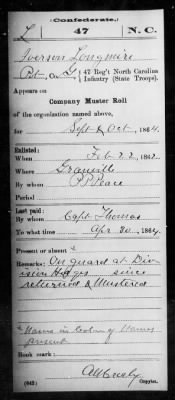 (Confederate.)
L 47 N. C.
Iverson Longmire
Pvt, Co. G, 47 Reg't North Carolina
Infantry (State Troops).
Appears on
Company Muster Roll
of the organization named above,
for Sept & Oct, 1864.
Enlisted:
When Feb 22, 1862.
Where Granville
By whom P. P. Peace
Period
Last paid:
By whom Capt Thomas
To what time Apr 30, 1864.
Present or absent *
Remarks: On guard at Div-
ision Hdqrs since
returned & mustered
* Name in column of Names
present
Book mark:
(642) Copyist.